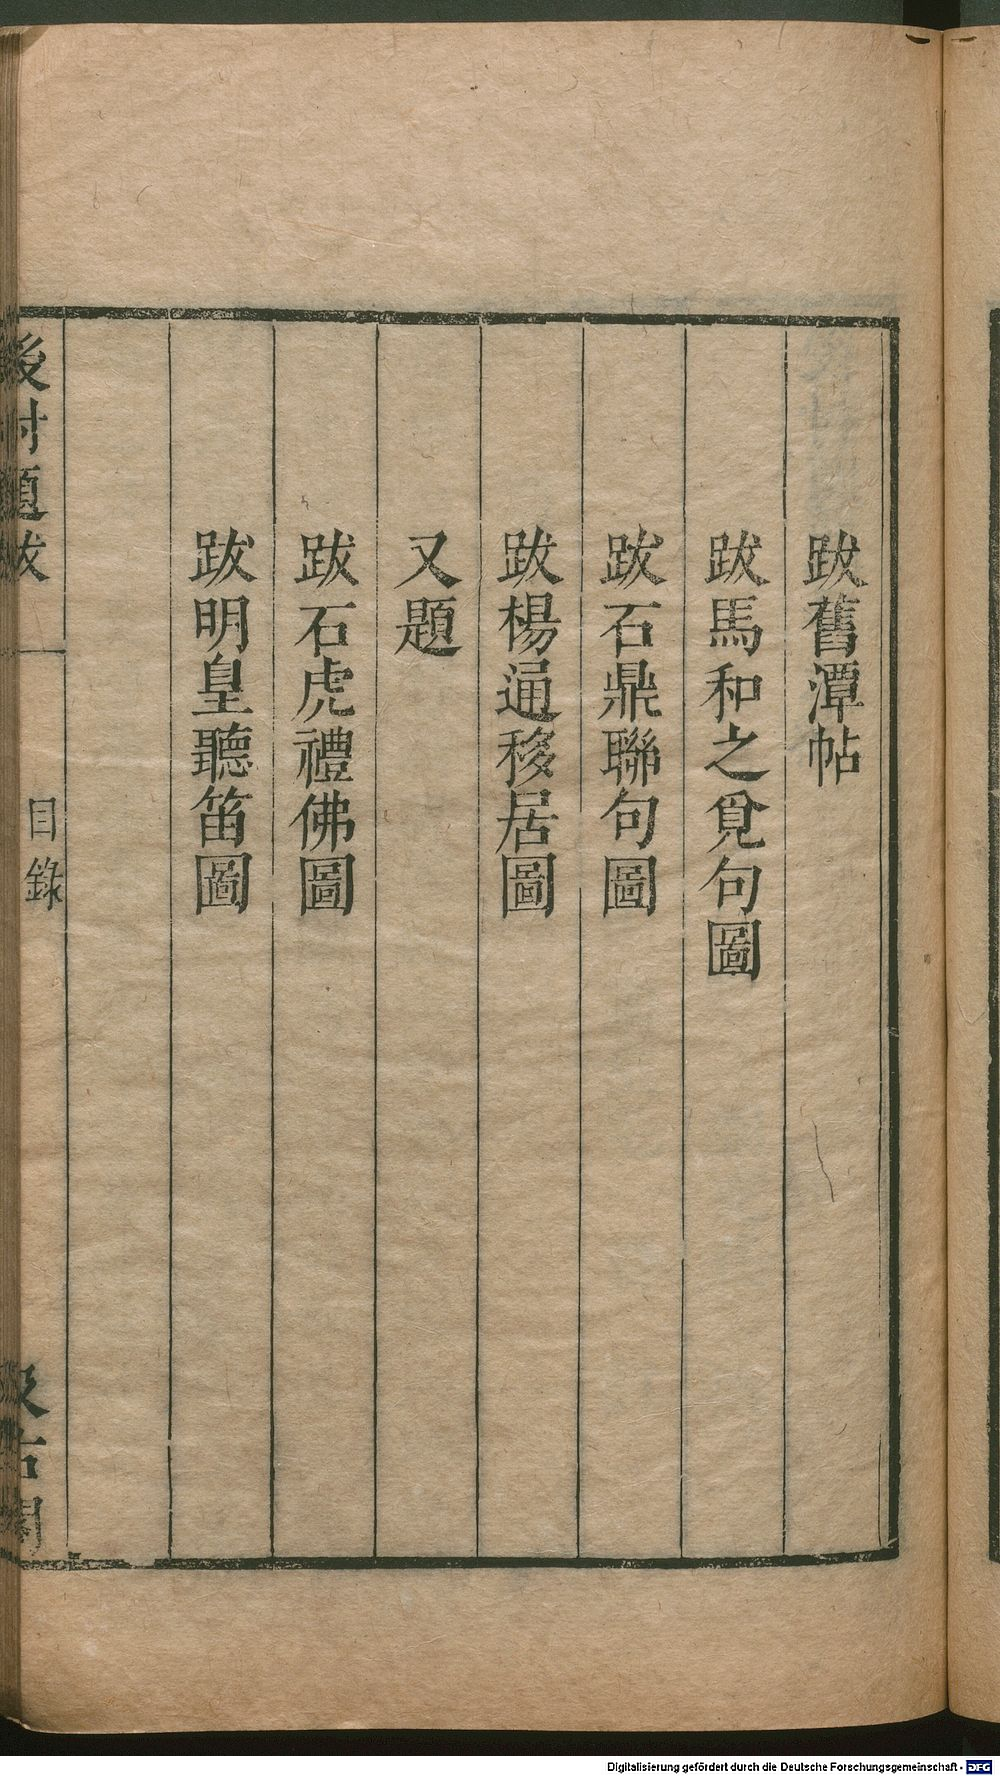 跋舊潭帖
跋馬和之覓句圖
跋石鼎聯句圖
跋楊通移居圖
又題
跋石虎禮佛圖
跋明皇聽笛圖
後村題跋
目錄
汲古閣
Digitalisierung gefördert durch die Deutsche Forschungsgemeinschaft - DFG